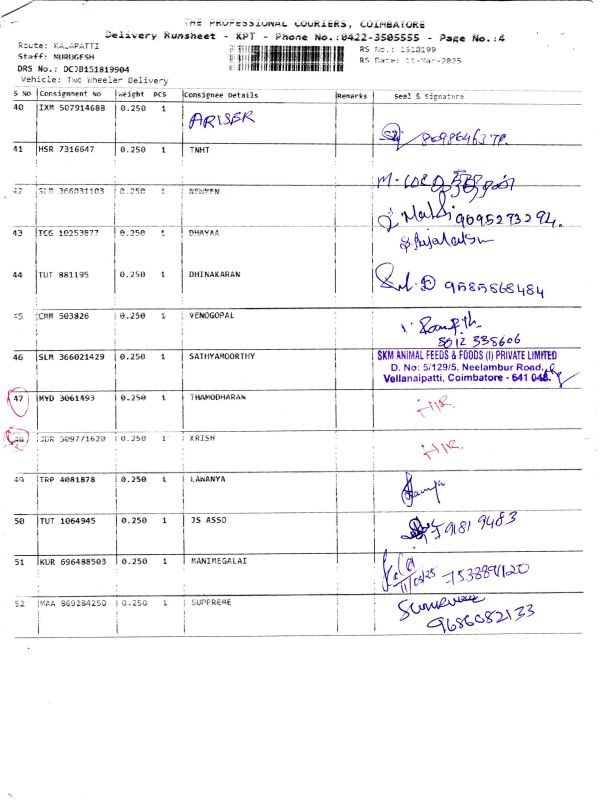 THE PROFESSIONAL COURIERS, COIMBATORE
Delivery Runsheet - KPT - Phone No.:0422-3505555 - Page No.:4
Route: KALAPATTI
Staff: MURUGESH
DRS No.: DCJB151819904
Vehicle: Two Wheeler Delivery
RS No.: 1518199
RS Date: 11-Mar-2025
S No Consignment No Weight PCS Consignee Details Remarks Seal & Signature
40 IXM 507914688 0.250 1 ARISER
41 HSR 7316647 0.250 1 TNHT
42 SLM 366031103 0.250 1 NEWMEN 9095273294.
43 TCG 10253877 0.250 1 DHAYAA
44 TUT 881195 0.250 1 DHINAKARAN 9585568484
45 CMM 503826 0.250 1 VENOGOPAL 8012 338606
46 SLM 366021429 0.250 1 SATHYAMOORTHY
SKM ANIMAL FEEDS & FOODS (I) PRIVATE LIMITED
D. No: 5/129/5, Neelambur Road,
Vellanaipatti, Coimbatore - 641 048.
47 MYD 3061493 0.250 1 THAMODHARAN
48 509771620 0.250 1 KRISH
49 TRP 4081878 0.250 1 LAWANYA
50 TUT 1064945 0.250 1 JS ASSO
51 KUR 696488503 0.250 1 MANIMEGALAI 11/03/25
52 MAA 869284250 0.250 1 SUPPREME
9686082133